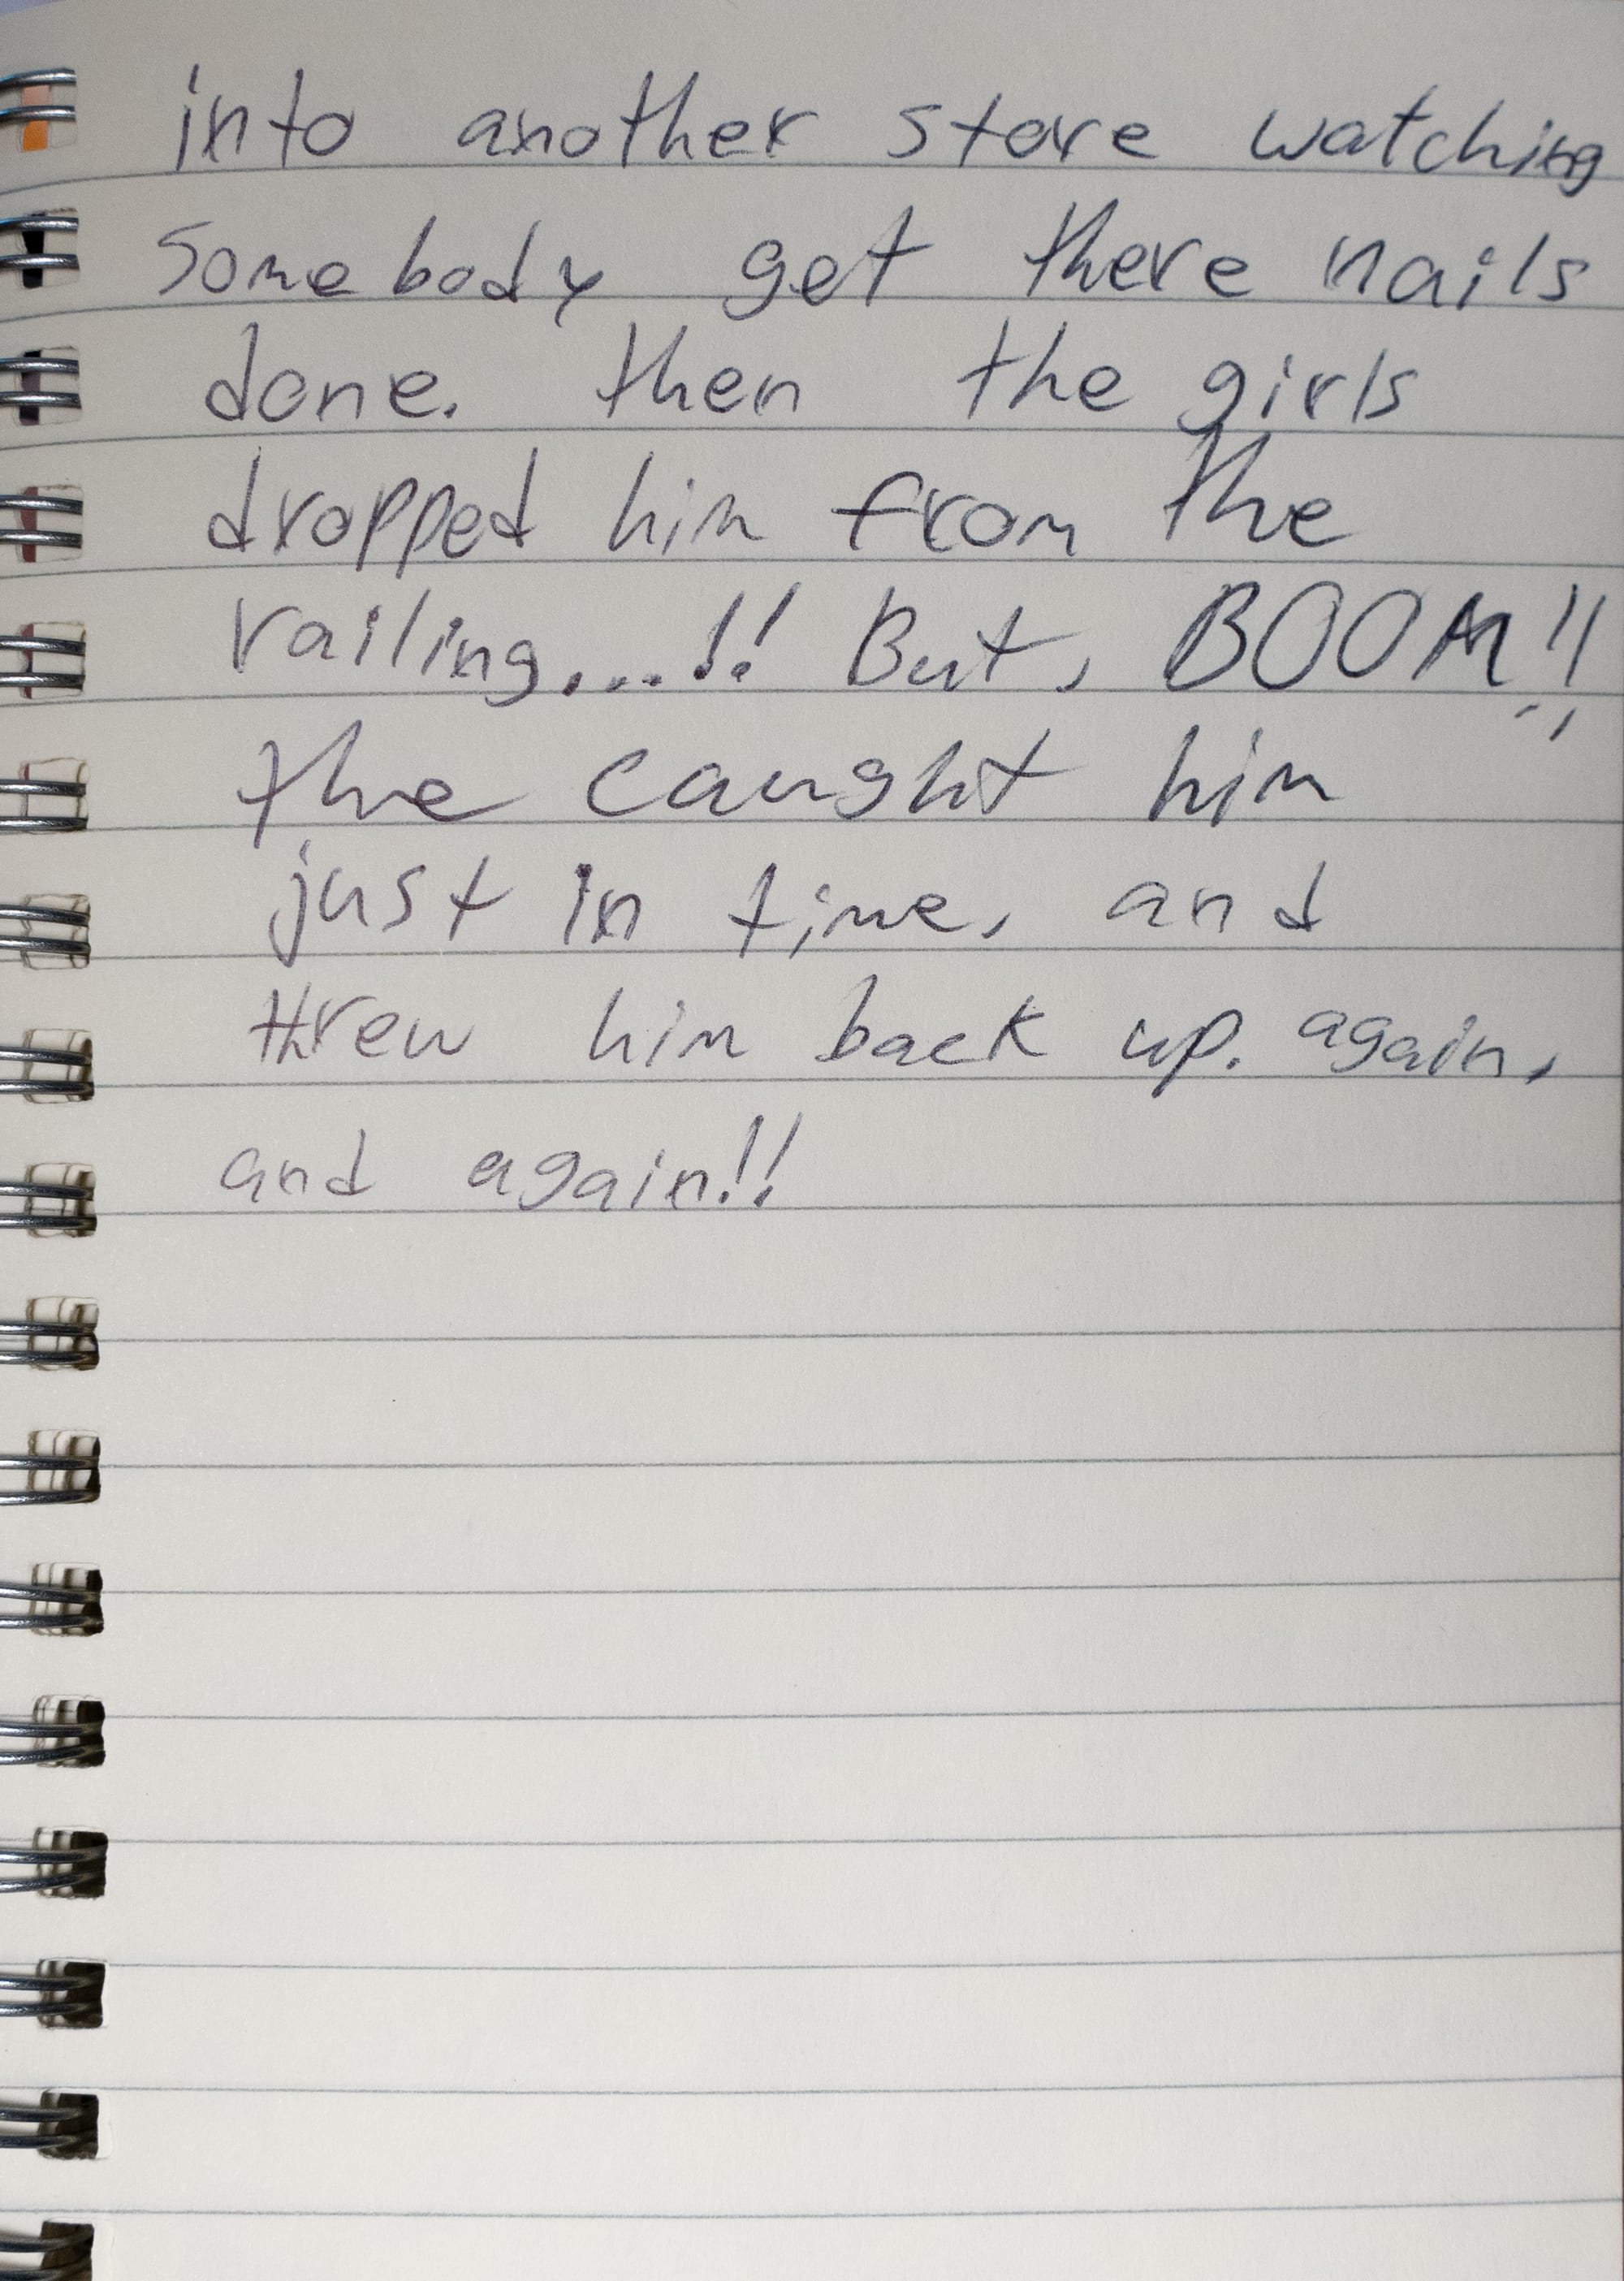 into another store watching
somebody get there nails
done. then the girls
dropped him from the
railing....!! But, BOOM!!
the caught him
just in time, and
threw him back up. again,
and again!!